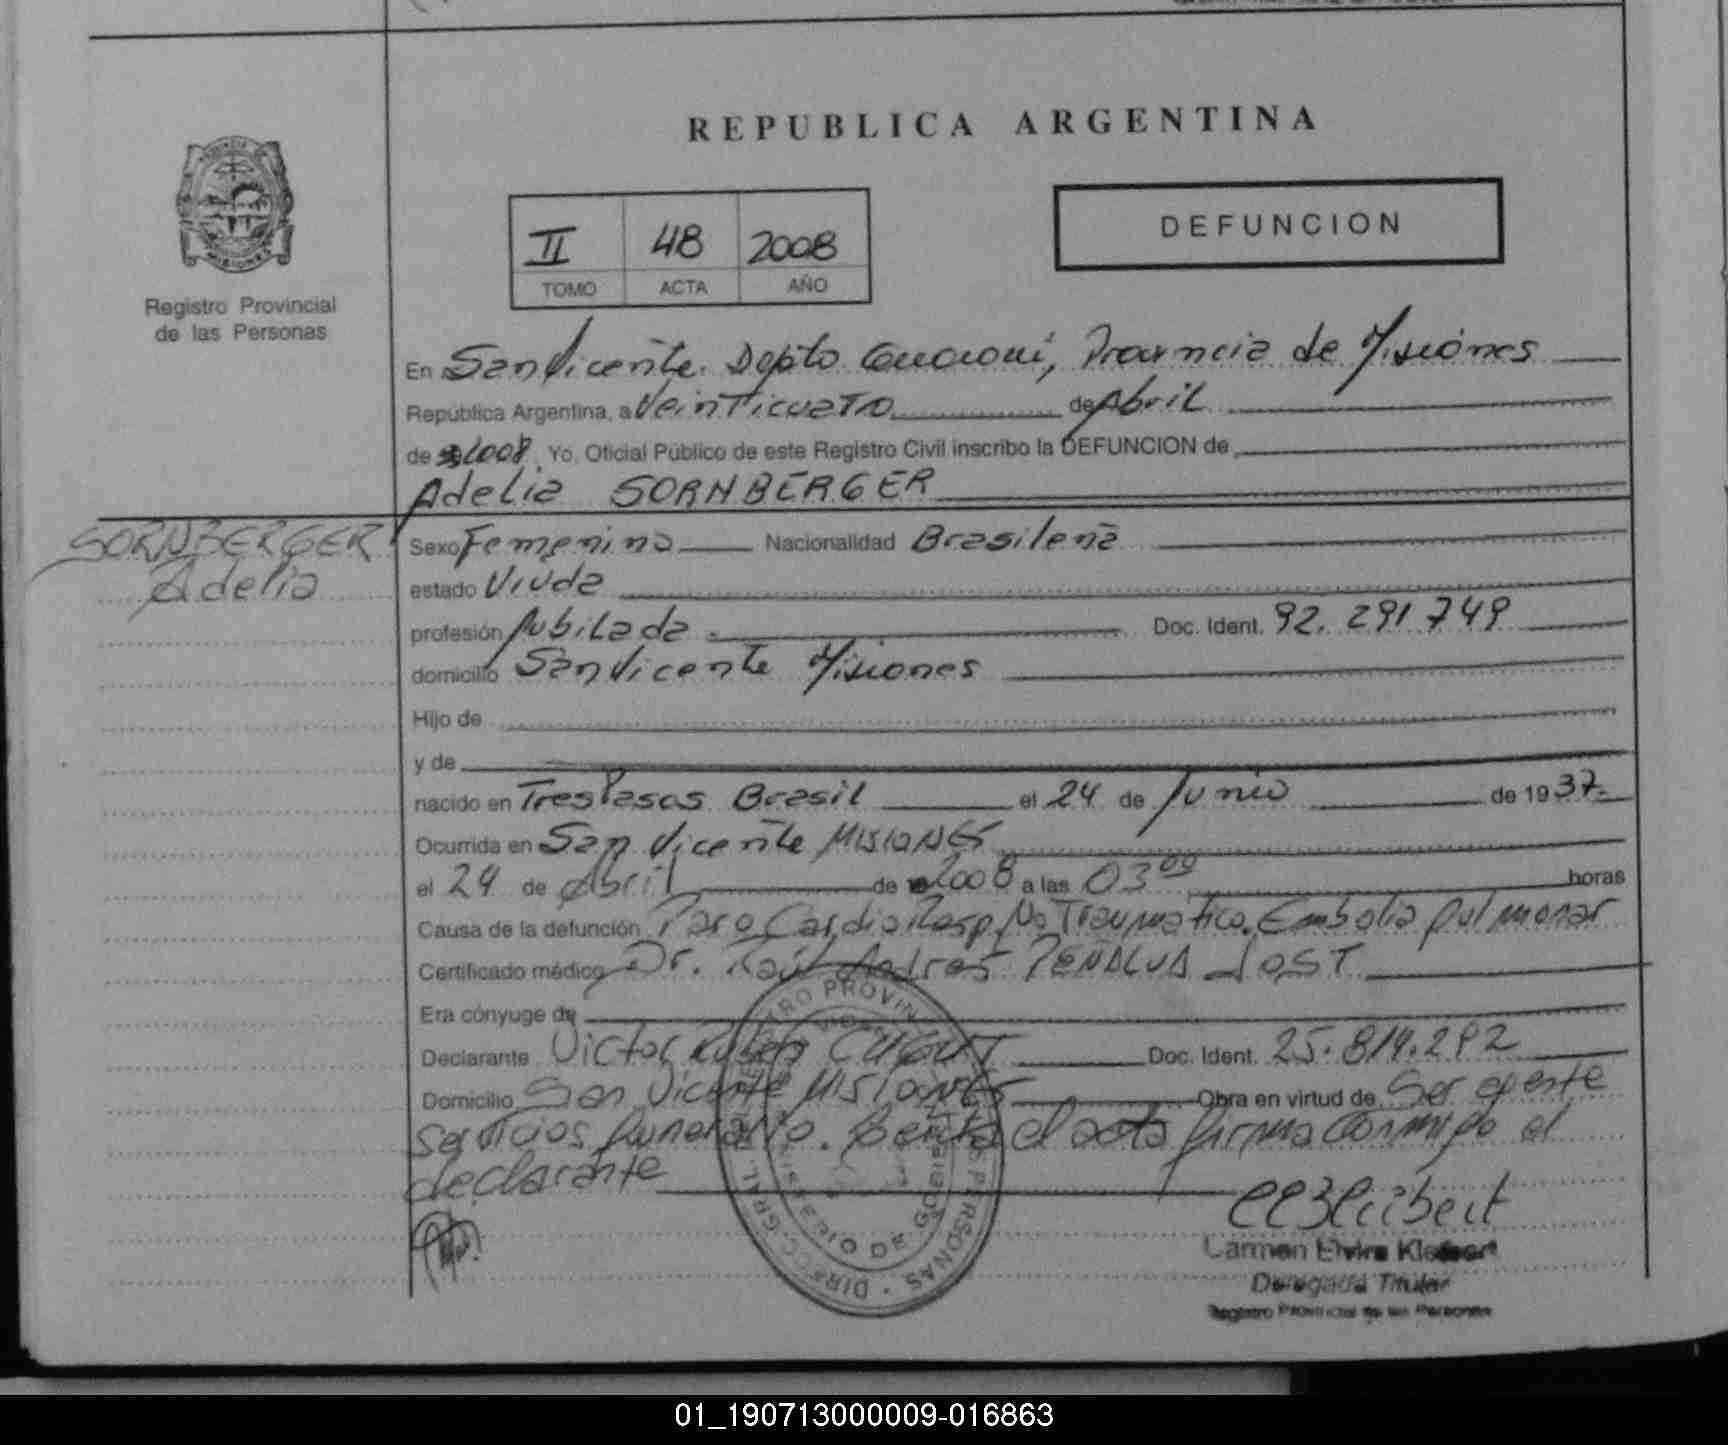 REPUBLICA ARGENTINA
DEFUNCION
II 48 2008
TOMO ACTA AÑO
MISIONES
Registro Provincial
de las Personas
En San Vicente. Depto Guaraní, Provincia de Misiones
República Argentina, a Veinticuatro de Abril
de 2008. Yo, Oficial Público de este Registro Civil inscribo la DEFUNCION de
Adelia SORNBERGER
SORNBERGER
Adelia
Sexo Femenino Nacionalidad Brasileña
estado Viuda
profesión Jubilada Doc. Ident. 92.291.749
domicilio San Vicente Misiones
Hijo de
y de
nacido en Tres Pasos Brasil el 24 de Junio de 1937.
Ocurrida en San Vicente MISIONES
el 24 de Abril de 2008 a las 03 00 horas
Causa de la defunción Paro Cardio Resp. No Traumatico. Embolia pulmonar
Certificado médico Dr. Raúl Andres PEÑALVA JOST
Era cónyuge de
Declarante Victor Ruben Doc. Ident. 25.814.292
Domicilio San Vicente MISIONES Obra en virtud de Ser agente
servicios funerario. el acta firma conmigo el
declarante
Carmen Elvira
Delegada Titular
Registro Provincial de las Personas
01_190713000009-016863